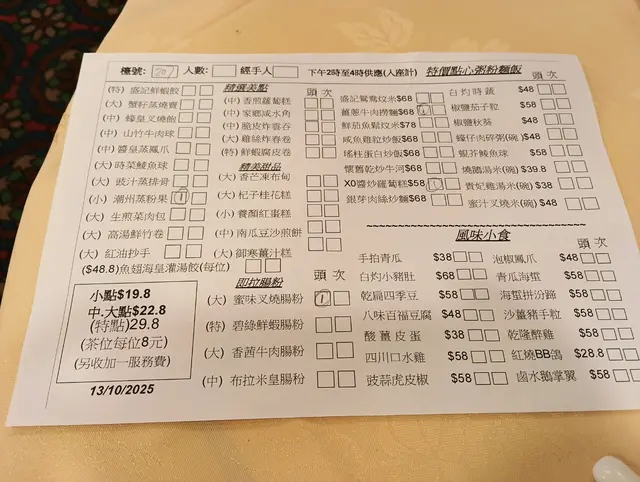 檯號: 207 人數: 經手人 下午2時至4時供應(入座計) 特價點心粥粉麵飯
頭 次
(特) 盛記鮮蝦餃
(大) 蟹籽蒸燒賣
(中) 蠔皇叉燒飽
(中) 山竹牛肉球
(中) 醬皇蒸鳳爪
(大) 時菜鯪魚球
(大) 豉汁蒸排骨
(小) 潮州蒸粉果 1
(大) 生煎菜肉包
(大) 高湯鮮竹卷
(大) 紅油抄手
($48.8)魚翅海皇灌湯餃(每位)
精選美點 頭 次
(中) 香煎蘿蔔糕
(中) 家鄉咸水角
(中) 脆皮炸雲吞
(大) 雞絲炸春卷
(特) 鮮蝦腐皮卷
精美甜品
(大) 香芒凍布甸
(大) 杞子桂花糕
(小) 養顏紅棗糕
(中) 南瓜豆沙煎餅
(大) 御寒薑汁糕
即拉腸粉 頭 次
(大) 蜜味叉燒腸粉 1
(特) 碧綠鮮蝦腸粉
(大) 香茜牛肉腸粉
(中) 布拉米皇腸粉
盛記鴛鴦炆米$68
薑蔥牛肉撈麵$68 1
鮮茄魚鬆炆米$78
咸魚雞粒炒飯$68
瑤柱蛋白炒飯$68
懷舊乾炒牛河$68
XO醬炒蘿蔔糕$58 1
銀芽肉絲炒麵$68
白灼時蔬 $48
椒鹽茄子粒 $58
椒鹽秋葵 $48
蠔仔肉碎粥(碗) $48
蝦芥鯪魚球 $58
燒鵝湯米(碗) $39.8
貴妃雞湯米(碗) $38
蜜汁叉燒米(碗) $48
風味小食
手拍青瓜 $38
白灼小豬肚 $68
乾扁四季豆 $58
八味百福豆腐 $48
酸薑皮蛋 $38
四川口水雞 $58
豉蒜虎皮椒 $58
泡椒鳳爪 $48
青瓜海蜇 $58
海蜇拼汾蹄 $58
沙薑豬手粒 $58
乾隆醉雞 $58
紅燒BB鴿 $28.8
鹵水鵝掌翼 $58
小點$19.8
中.大點$22.8
(特點)29.8
(茶位每位8元)
(另收加一服務費)
13/10/2025